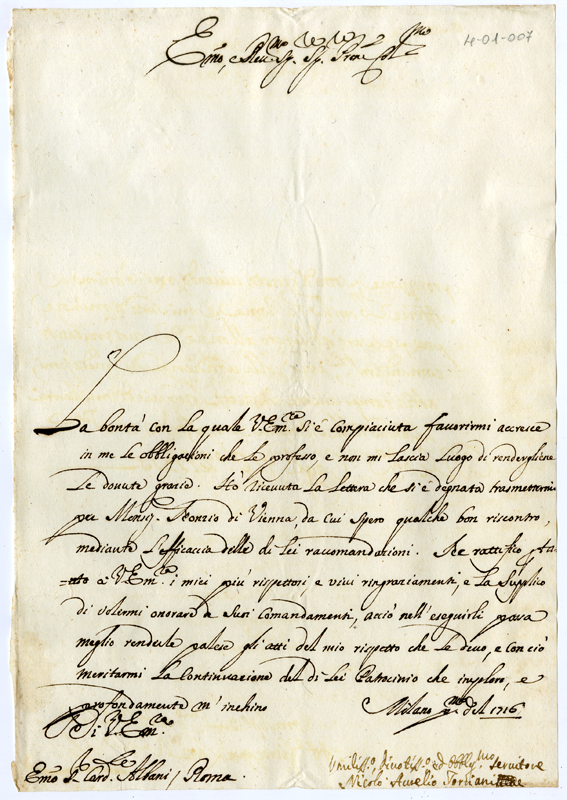 4-01-007
Emo, e Reumo Sig. Sig. Prone Colmo
La bontà con La quale V. Emza si è compiaciuta favorirmi accresce
in me Le obbligazioni che Le professo, e non mi Lascia Luogo di rendergliene
Le douute grazie. Hò riceuuta La Lettera che si è degnata trasmettermi
per Monsig. di Vienna, da cui spero qualche bon riscontro,
mediante L'efficaccia delle di Lei raccomandazioni. Le rattifico per tan-
=to a V. Emza i miei più rispettosi e viui ringraziamenti, e La supplico
di volermi onorare de suoi Comandamenti, acciò nell'eseguirli possa
meglio renderle palese gli atti del mio rispetto che Le deuo, e con ciò
meritarmi La Continuazione del di Lei Patrocinio che imploro, e
profondamente m'inchino
Milano del 1716
Di V. Emza
Emo S. Card. Albani / Roma.
Vmiliss.o Diuotiss.o ed Obblig.mo Seruitore
Nicolò Aurelio